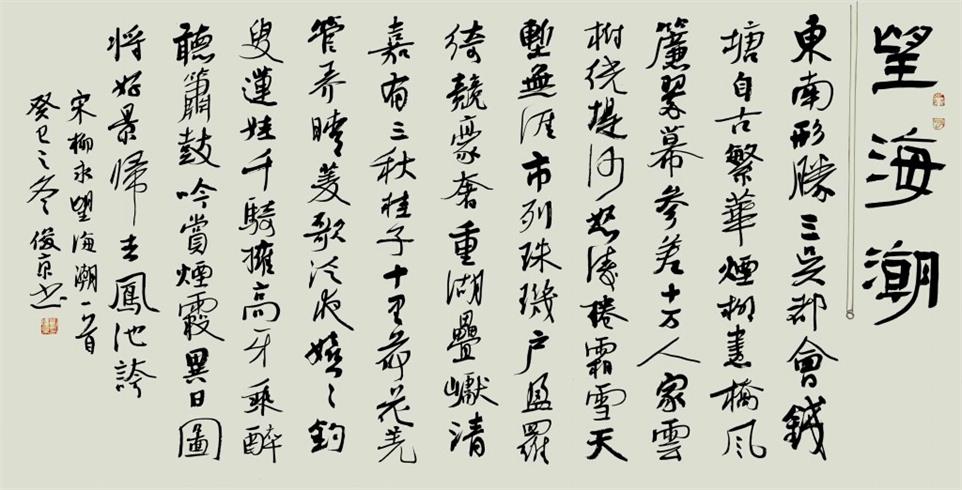 望海潮
東南形勝三吳都會錢
塘自古繁華煙柳畫橋風
簾翠幕參差十万人家雲
樹绕堤沙怒濤捲霜雪天
塹無涯市列珠璣户盈羅
綺競豪奢重湖疊巘清
嘉有三秋桂子十里荷花羌
管弄晴菱歌泛夜嬉〻釣
叟蓮娃千騎擁高牙乘醉
聽簫鼓吟賞煙霞異日圖
将好景歸去鳳池誇
宋柳永望海潮一首
癸巳之冬俊京书